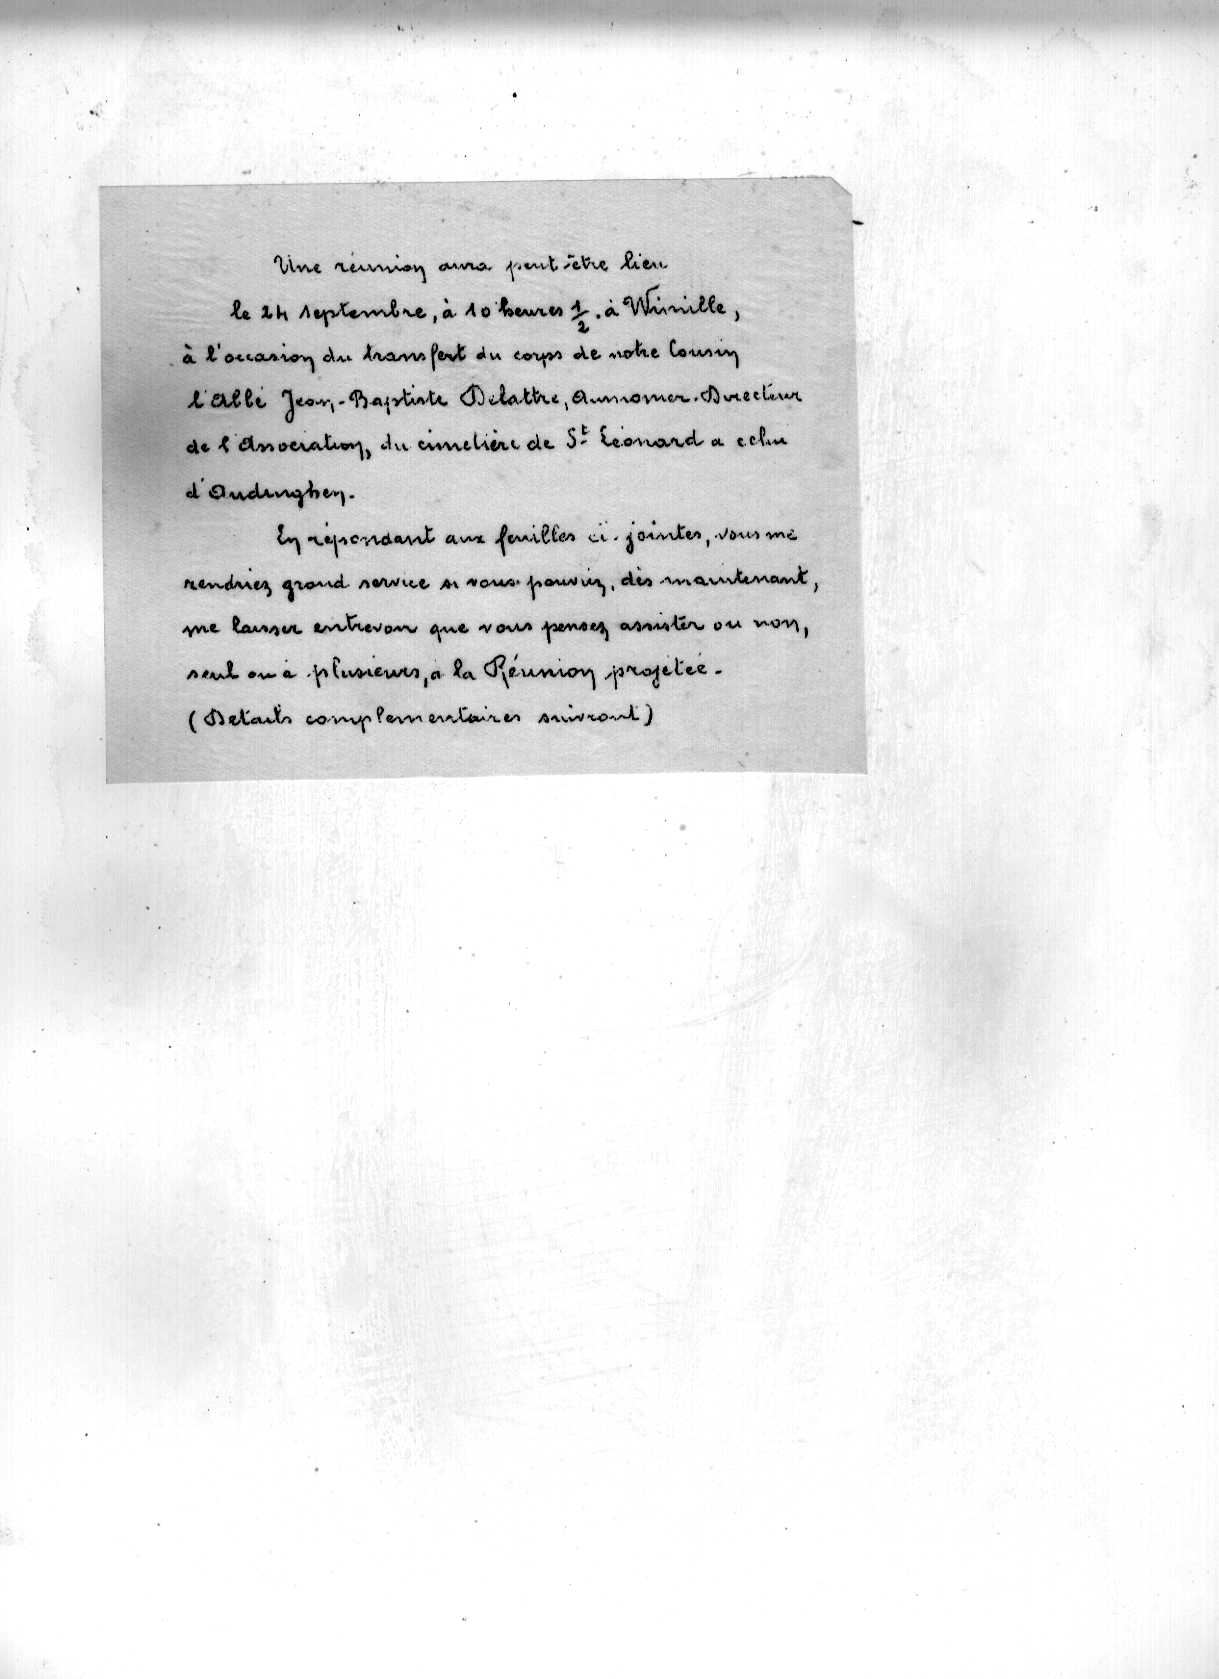 Une réunion aura peut-être lieu
le 24 septembre, à 10 heures 1/2. à Wimille,
à l'occasion du transfert du corps de notre Cousin
l'Abbé Jean-Baptiste Delattre, Aumonier-Directeur
de l'Association, du cimetière de St Léonard a celui
d'Audinghen.
En répondant aux feuilles ci-jointes, vous me
rendriez grand service si vous pouviez, dès maintenant,
me laisser entrevoir que vous pensez assister ou non,
seul ou à plusieurs, à la Réunion projetée.
(Details complementaires suivront)